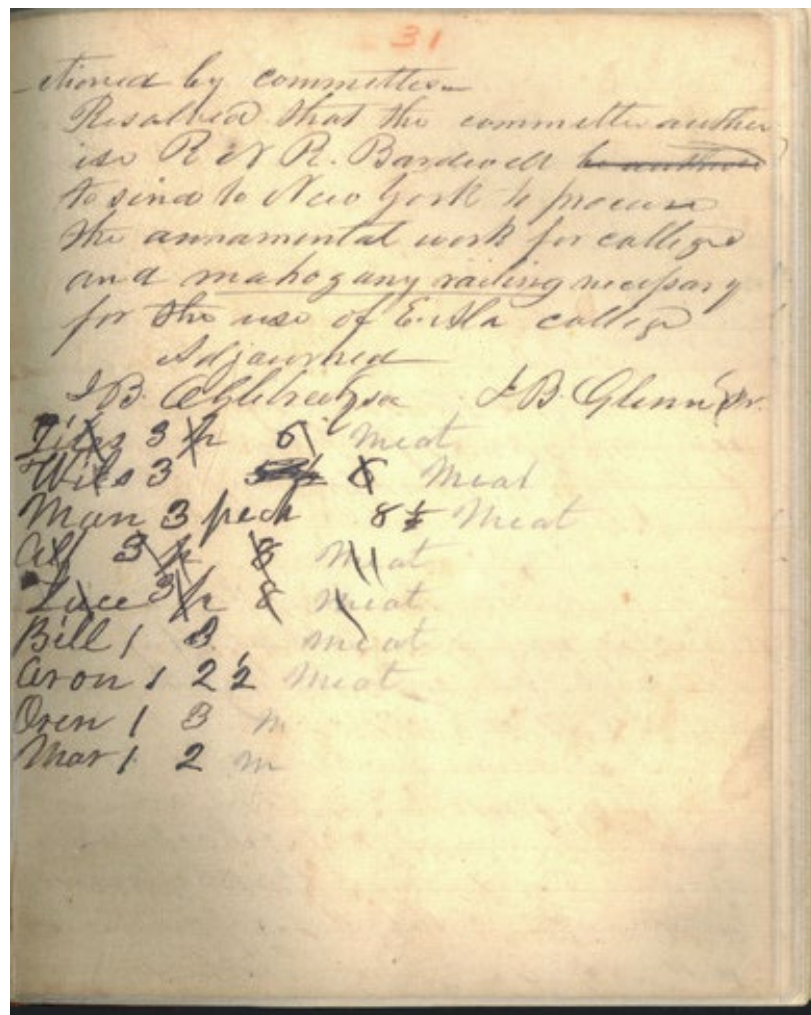 31
-tioned by committee
Resolved that the committee author
ise R N R. Bardwell be authorise
to send to New York to procure
the annamental work for college
and mahogany railing necessary
for the use of E. Ala college
Adjourned
J B. Glenn Sr.
3 p 6 meat
Wils 3 6 Meat
Man 3 peck 8 ½ Meat
Alf 3 p 8 Meat
Luce 3 p 8 Meat
Bill 1 3 meat
Aron 1 2 ½ Meat
Oren 1 3 m
Mar 1 2 m